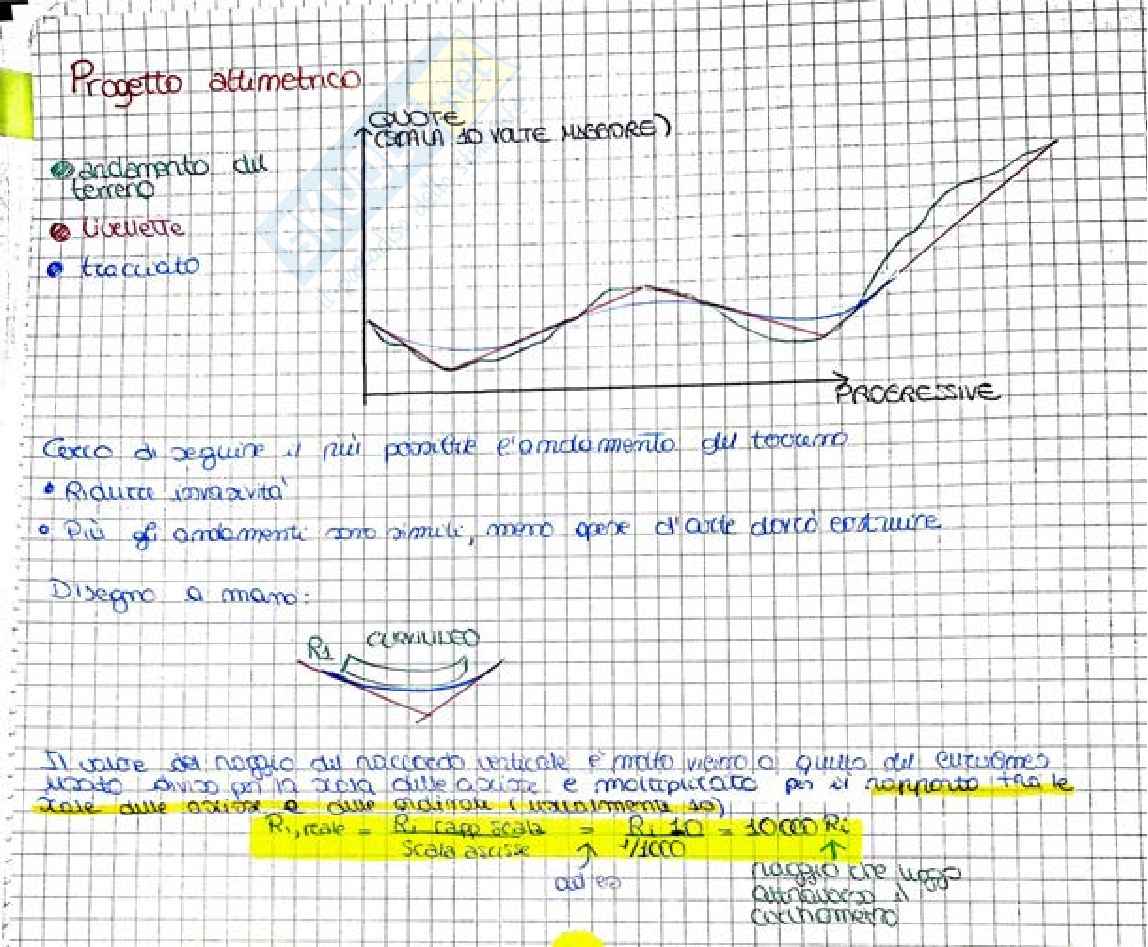 Progetto altimetrico
QUOTE
(SCALA 10 VOLTE MAGGIORE)
andamento del
terreno
livellette
tracciato
PROGRESSIVE
Cerco di seguire il più possibile l'andamento del terreno
• Riduce invasività
• Più gli andamenti sono simili, meno opere d'arte dovrò costruire
Disegno a mano:
R1 CURVILINEO
Il valore del raggio del raccordo verticale è molto vicino a quello del curvilineo
usato diviso per la scala delle ascisse e moltiplicato per il rapporto tra le
scale delle ascisse e delle ordinate (usualmente 10)
Ri,reale = Ri rapp scala / Scala ascisse = Ri 10 / 1/1000 = 10000 Ri
ad es
raggio che leggo
attraverso il